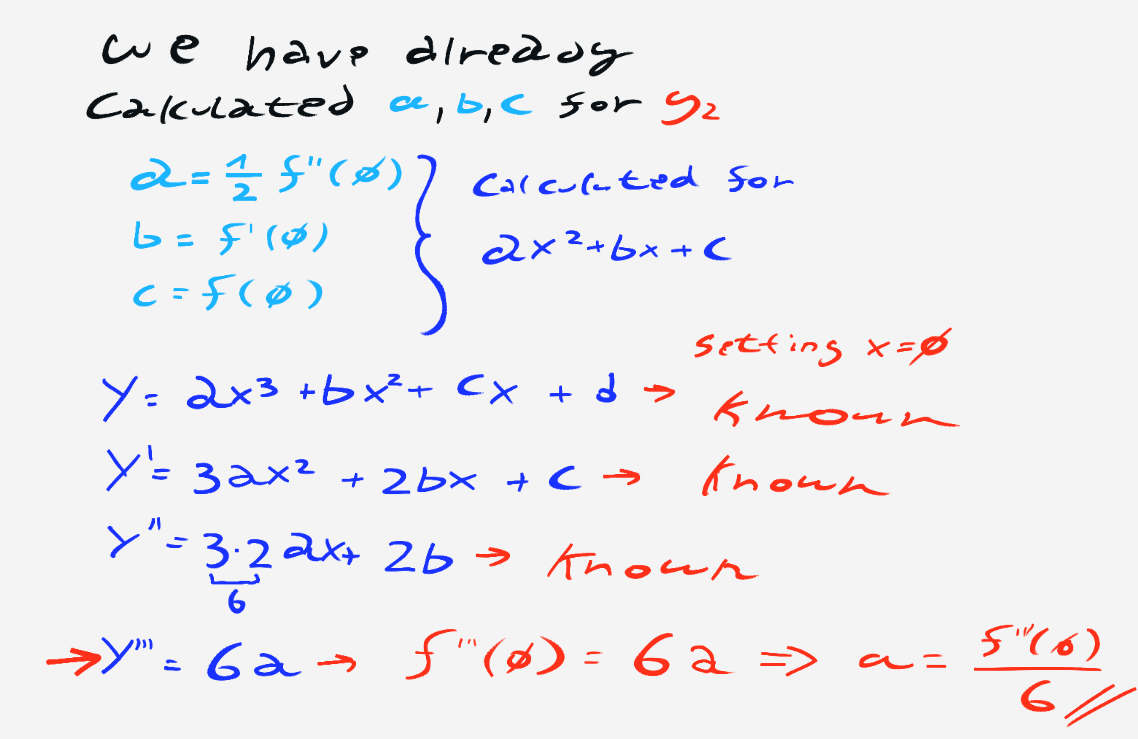 we have already
calculated a, b, c for y₂
a = 1/2 f''(ø)
b = f'(ø)
c = f(ø)
calculated for
ax² + bx + c
setting x = ø
y = ax³ + bx² + cx + d → known
y' = 3ax² + 2bx + c → known
y'' = 3·2 ax + 2b → known
6
→ y''' = 6a → f'''(ø) = 6a => a = f'''(ø)/6